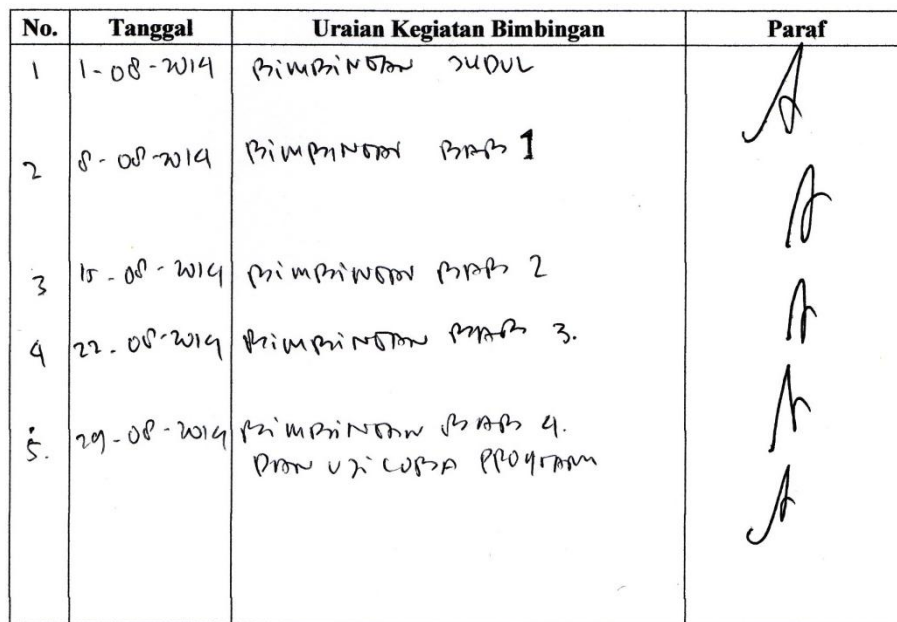 No. Tanggal Uraian Kegiatan Bimbingan Paraf
1 1-08-2014 BIMBINGAN JUDUL
2 8-08-2014 BIMBINGAN BAB 1
3 15-08-2014 BIMBINGAN BAB 2
4 22-08-2014 BIMBINGAN BAB 3.
5. 29-08-2014 BIMBINGAN BAB 4.
DAN UJI COBA PROGRAM